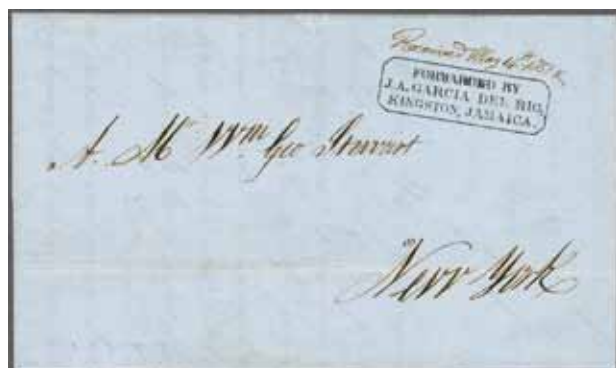 Received May 4th
FORWARDED BY
J.A. GARCIA DEL RIO,
KINGSTON, JAMAICA.
A. Mr. Wm. Geo Stewart
New York